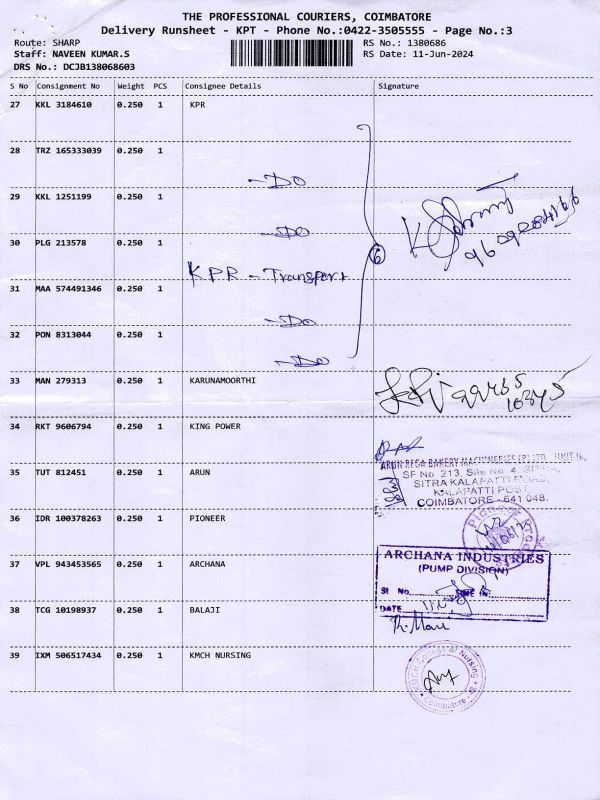 THE PROFESSIONAL COURIERS, COIMBATORE
Delivery Runsheet - KPT - Phone No.:0422-3505555 - Page No.:3
Route: SHARP
RS No.: 1380686
Staff: NAVEEN KUMAR.S
RS Date: 11-Jun-2024
DRS No.: DCJB138068603
S No Consignment No Weight PCS Consignee Details Signature
27 KKL 3184610 0.250 1 KPR
28 TRZ 165333039 0.250 1
-DO
29 KKL 1251199 0.250 1
-DO
30 PLG 213578 0.250 1
6
KPR - Transport
31 MAA 574491346 0.250 1
-DO
32 PON 8313044 0.250 1
-DO
33 MAN 279313 0.250 1 KARUNAMOORTHI
34 RKT 9606794 0.250 1 KING POWER
35 TUT 812451 0.250 1 ARUN
ARUN REGA BAKERY MACHINERIES (P) LTD., UNIT-
SF No. 213, Site No. 4,
SITRA KALAPATTI ROAD,
KALAPATTI POST,
COIMBATORE - 641 048.
36 IDR 100378263 0.250 1 PIONEER
Pioneer
37 VPL 943453565 0.250 1 ARCHANA
ARCHANA INDUSTRIES
(PUMP DIVISION)
Sl No.
TIME IN:
DATE
38 TCG 10198937 0.250 1 BALAJI
R. Mani
39 IXM 506517434 0.250 1 KMCH NURSING
KMCH College of Nursing
Coimbatore -